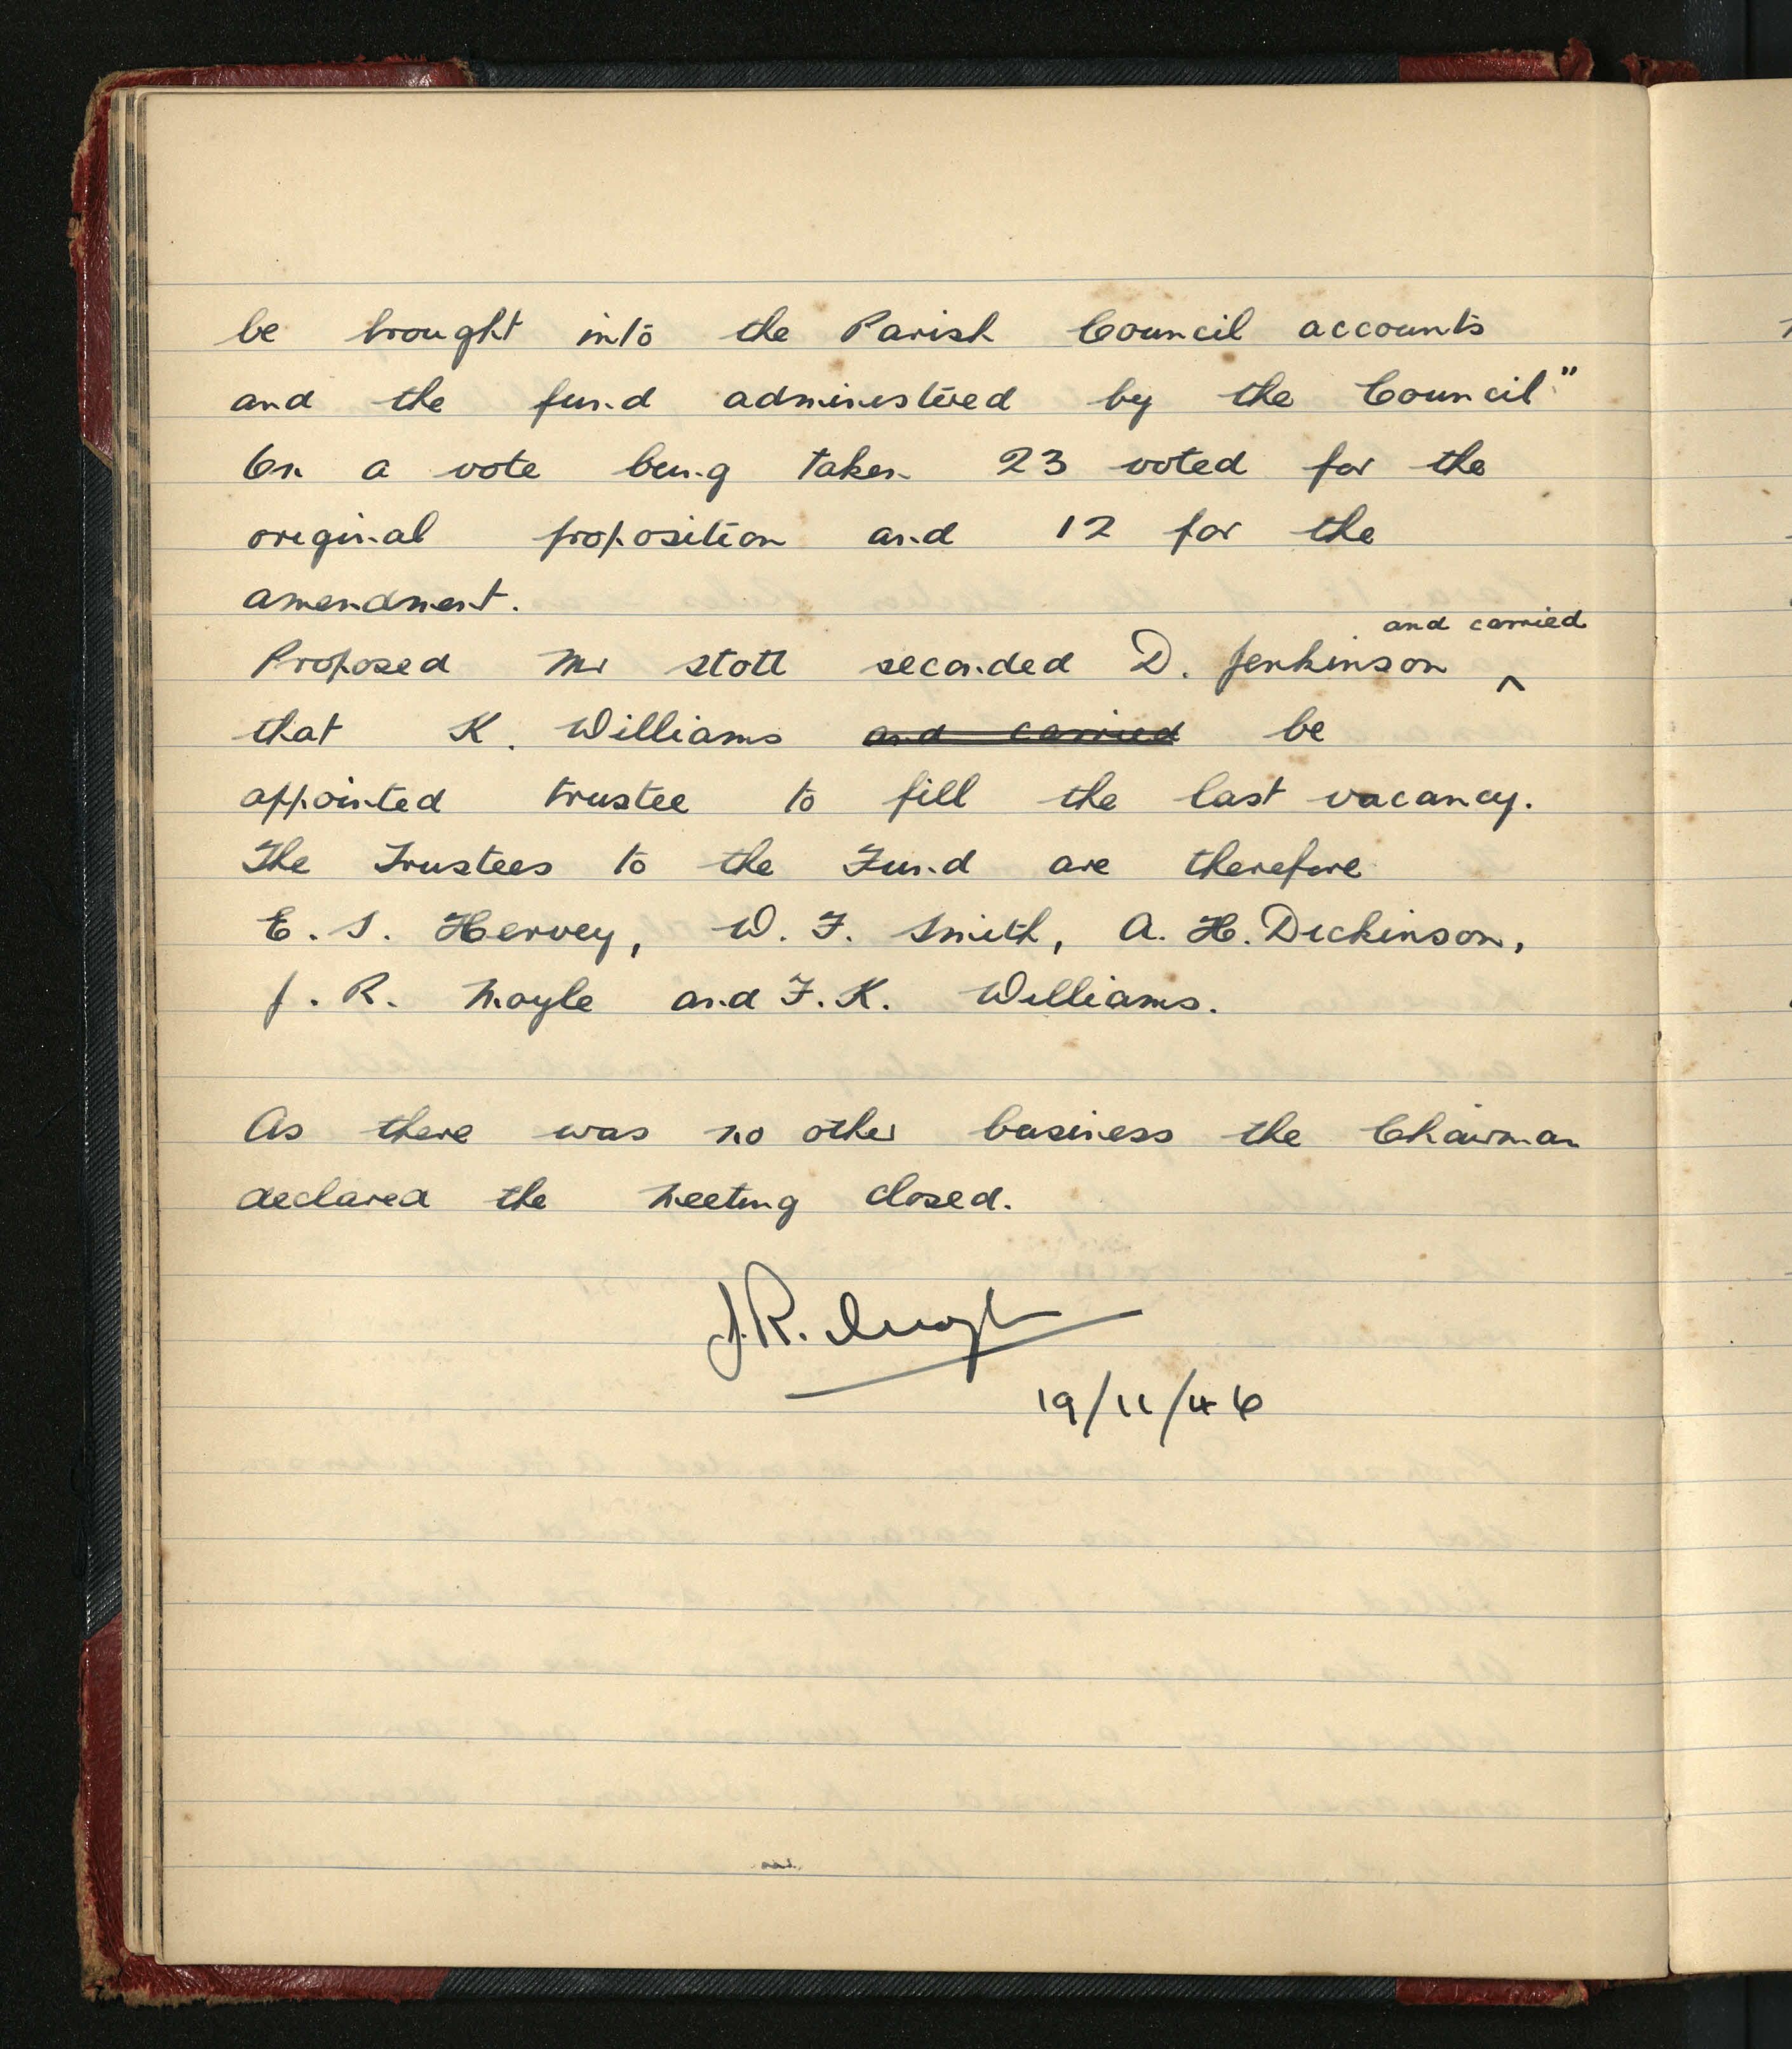 be brought into the Parish Council accounts
and the fund administered by the Council"
On a vote being taken 23 voted for the
original proposition and 12 for the
amendment.
and carried
Proposed Mr Stott seconded D. Jenkinson ^
that K. Williams and carried be
appointed trustee to fill the last vacancy.
The Trustees to the Fund are therefore
E. S. Hervey, W. F. Smith, A. H. Dickinson,
J. R. Moyle and F. K. Williams.
As there was no other business the Chairman
declared the meeting closed.
J.R. Moyle
19/11/46